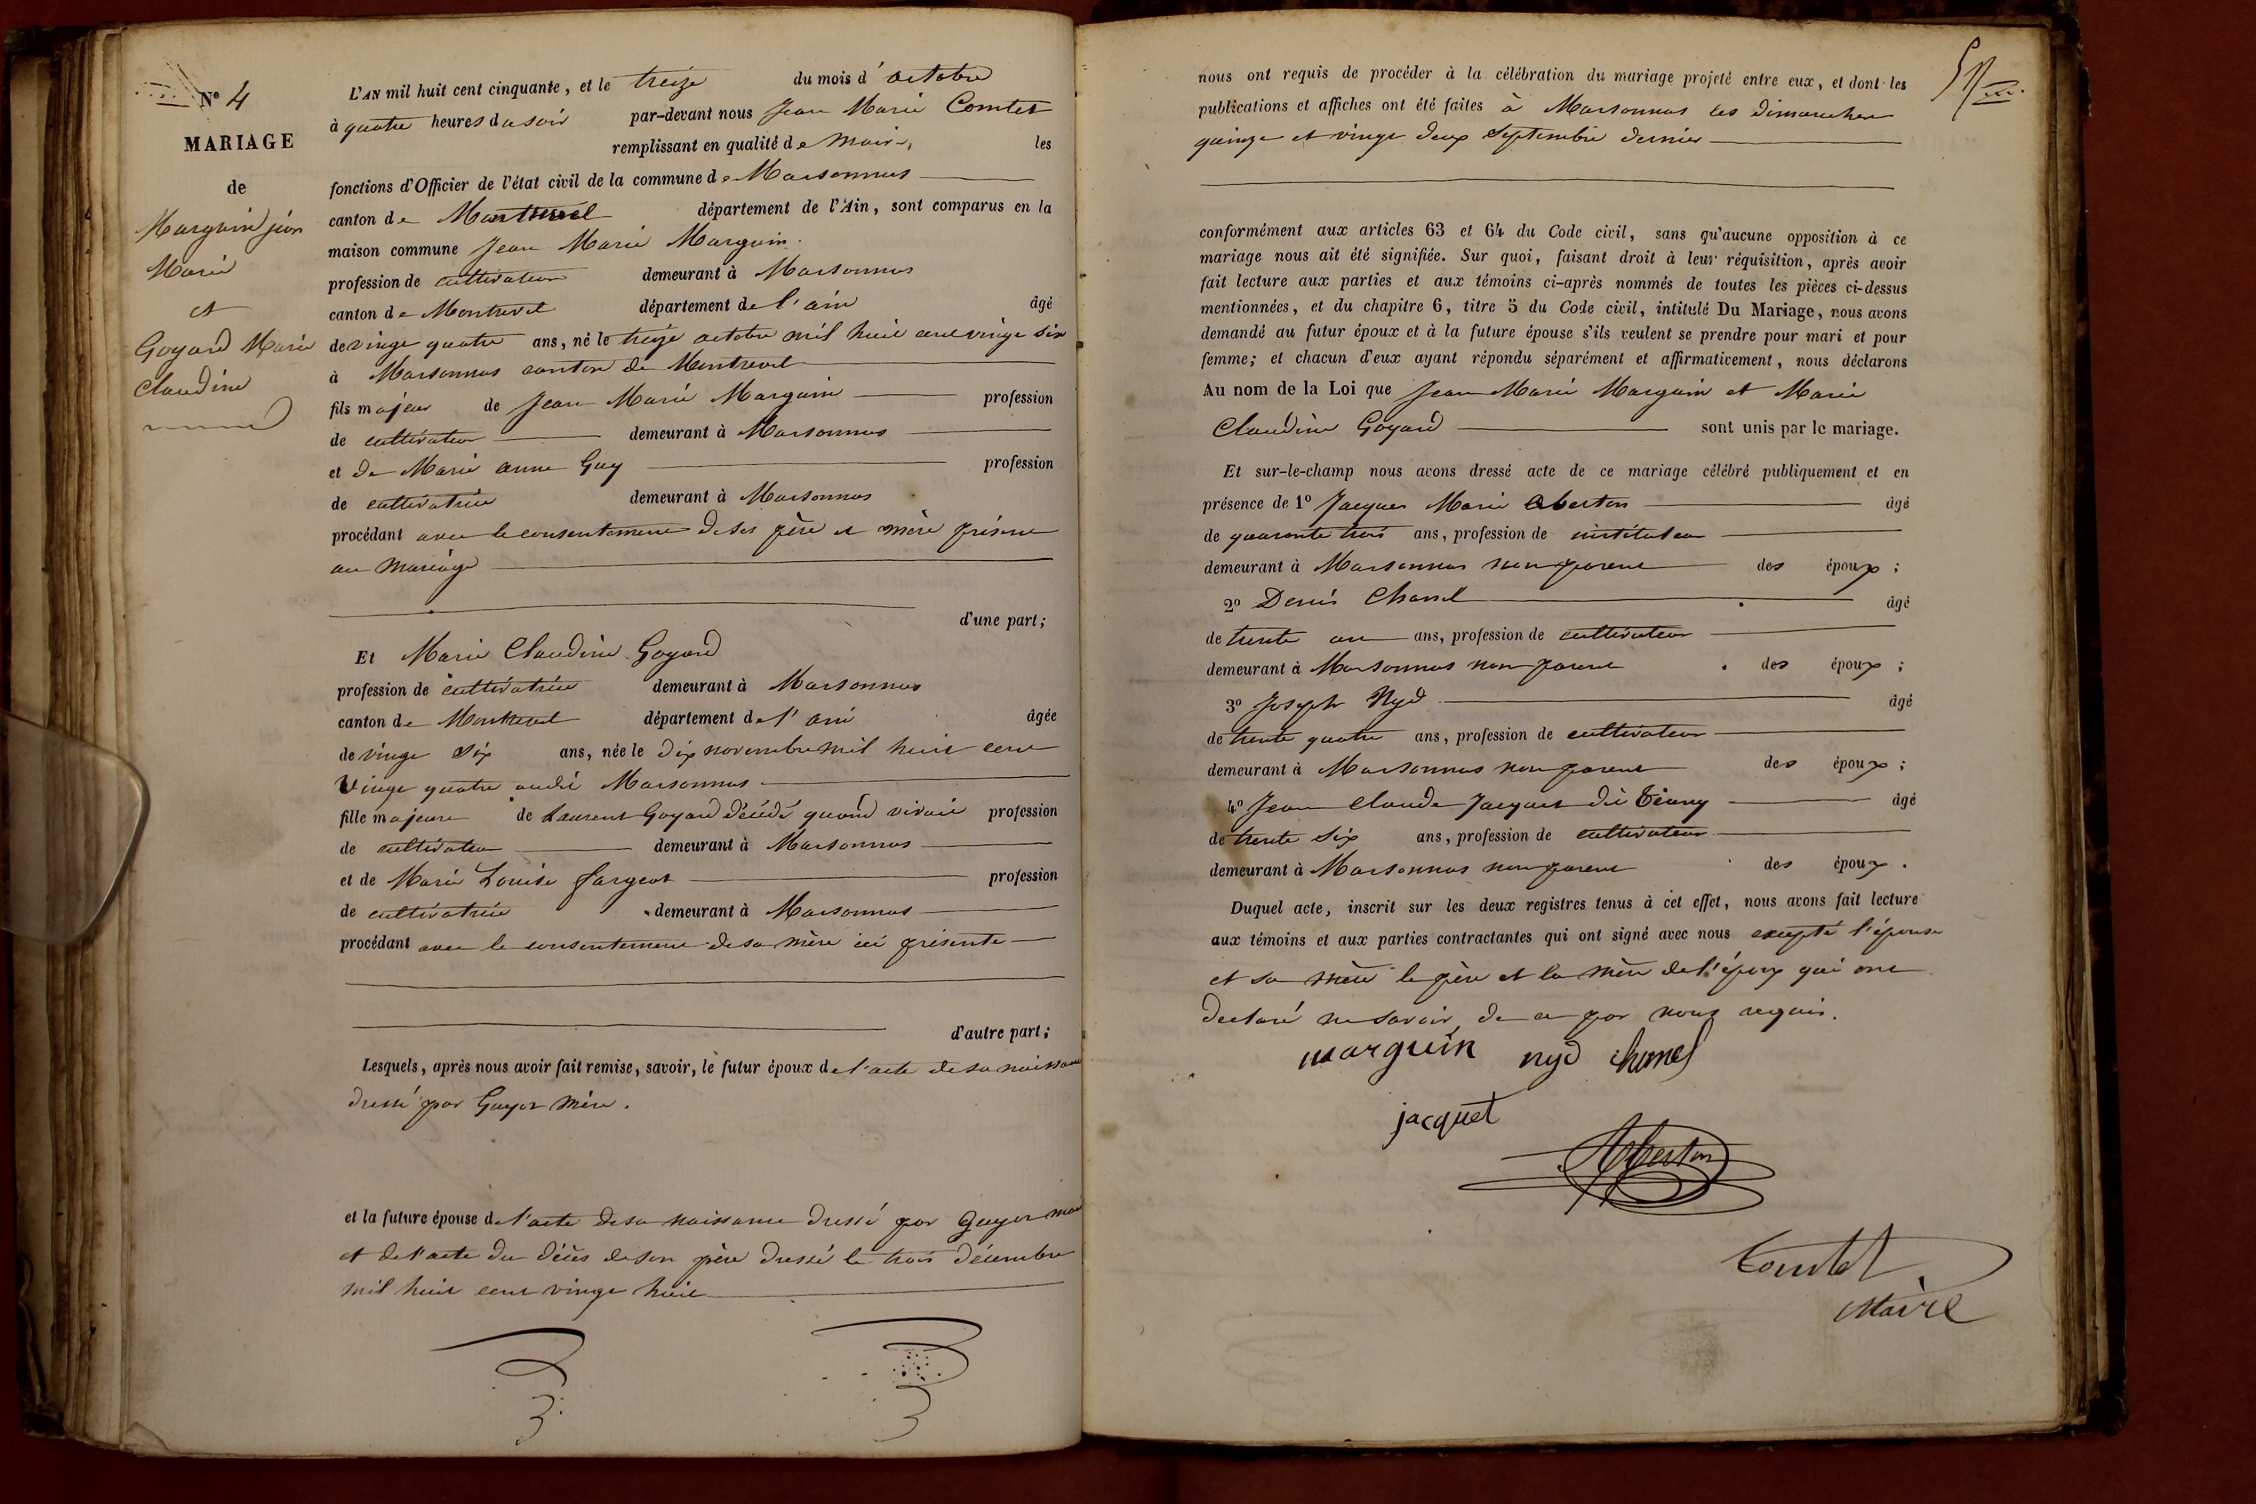 N° 4
MARIAGE
de
Marguin jean
Marie
et
Goyard Marie
Claudine
L'AN mil huit cent cinquante, et le treize du mois d'octobre
à quatre heures du soir par-devant nous Jean Marie Comtet
remplissant en qualité de Maire, les
fonctions d'Officier de l'état civil de la commune de Marsonnas
canton de Montrevel département de l'Ain, sont comparus en la
maison commune Jean Marie Marguin
profession de cultivateur demeurant à Marsonnas
canton de Montrevel département de l'ain âgé
de vingt quatre ans, né le treize octobre mil huit cent vingt six
à Marsonnas canton de Montrevel
fils majeur de Jean Marie Marguin profession
de cultivateur demeurant à Marsonnas
et de Marie anne Guy profession
de cultivatrice demeurant à Marsonnas
procédant avec le consentement de ses père et mère présent
au mariage
d'une part;
Et Marie Claudine Goyard
profession de cultivatrice demeurant à Marsonnas
canton de Montrevel département de l'ain âgée
de vingt six ans, née le dix novembre mil huit cent
vingt quatre audit Marsonnas
fille majeure de Laurent Goyard décédé quand vivait profession
de cultivateur demeurant à Marsonnas
et de Marie Louise fargeot profession
de cultivatrice demeurant à Marsonnas
procédant avec le consentement de sa mère ici présente
d'autre part;
Lesquels, après nous avoir fait remise, savoir, le futur époux de l'acte de sa naissance
dressé par Guyot
et la future épouse de l'acte de sa naissance dressé par Guyot
et de l'acte du décès de son père dressé le trois décembre
mil huit cent vingt huit
nous ont requis de procéder à la célébration du mariage projeté entre eux, et dont les
publications et affiches ont été faites à Marsonnas les dimanches
quinze et vingt deux Septembre dernier
conformément aux articles 63 et 64 du Code civil, sans qu'aucune opposition à ce
mariage nous ait été signifiée. Sur quoi, faisant droit à leur réquisition, après avoir
fait lecture aux parties et aux témoins ci-après nommés de toutes les pièces ci-dessus
mentionnées, et du chapitre 6, titre 5 du Code civil, intitulé Du Mariage, nous avons
demandé au futur époux et à la future épouse s'ils veulent se prendre pour mari et pour
femme; et chacun d'eux ayant répondu séparément et affirmativement, nous déclarons
Au nom de la Loi que Jean Marie Marguin et Marie
Claudine Goyard sont unis par le mariage.
Et sur-le-champ nous avons dressé acte de ce mariage célébré publiquement et en
présence de 1° Jacques Marie Aberton âgé
de quarante trois ans, profession de instituteur
demeurant à Marsonnas non parent des époux;
2° Denis Chanel âgé
de trente un ans, profession de cultivateur
demeurant à Marsonnas non parent des époux;
3° Joseph Nyd âgé
de trente quatre ans, profession de cultivateur
demeurant à Marsonnas non parent des époux;
4° Jean Claude Jacquet dit âgé
de trente six ans, profession de cultivateur
demeurant à Marsonnas non parent des époux.
Duquel acte, inscrit sur les deux registres tenus à cet effet, nous avons fait lecture
aux témoins et aux parties contractantes qui ont signé avec nous excepté l'épouse
et sa mère le père et la mère de l'époux qui ont
déclaré ne savoir, de ce par nous requis.
marguin nyd chanel
jacquet
Aberton
Comtet
Maire